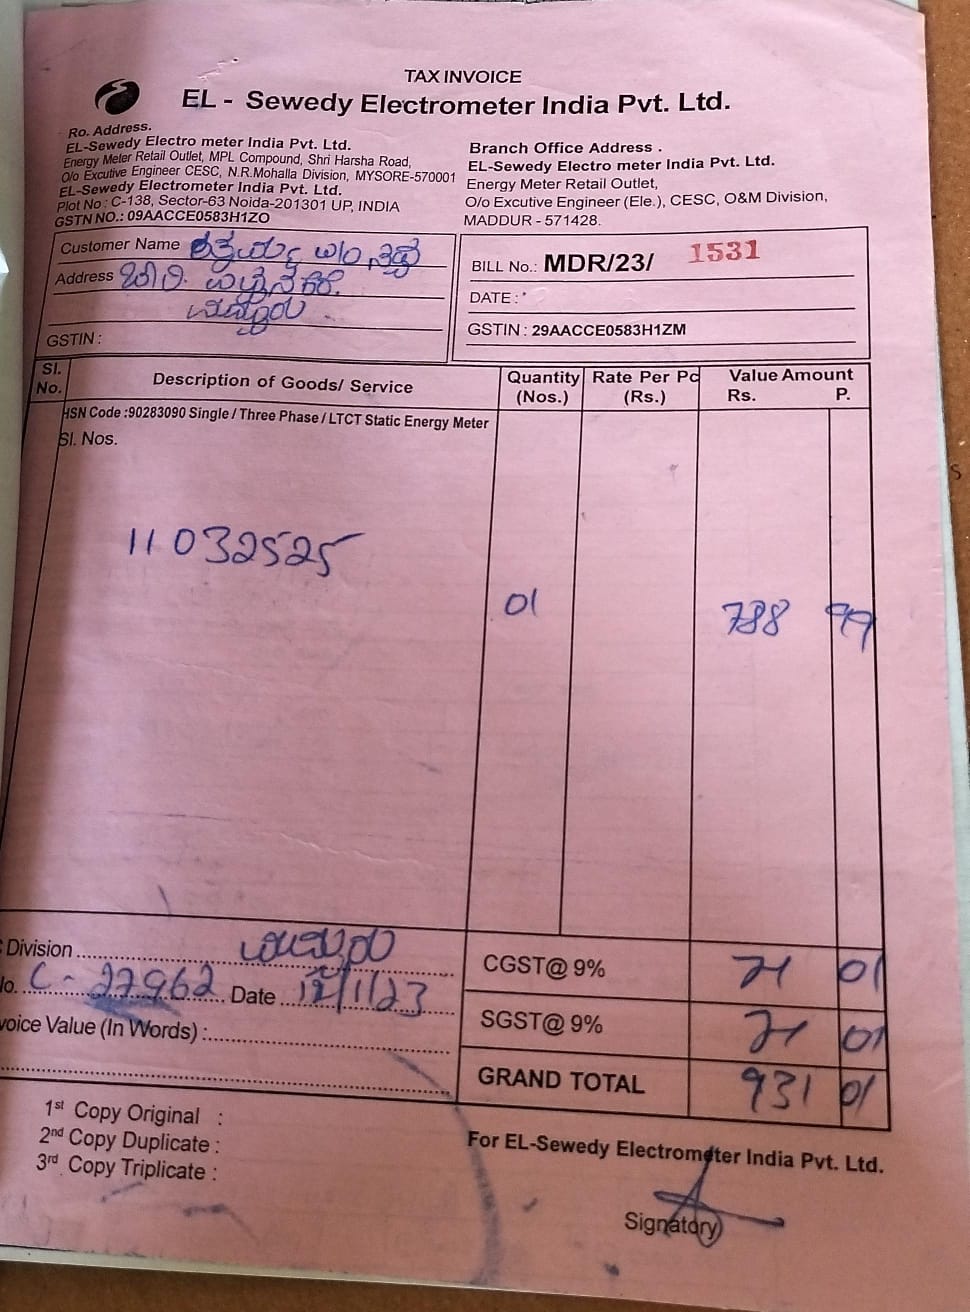 TAX INVOICE
EL - Sewedy Electrometer India Pvt. Ltd.
Ro. Address.
EL-Sewedy Electro meter India Pvt. Ltd.
Energy Meter Retail Outlet, MPL Compound, Shri Harsha Road,
O/o Excutive Engineer CESC, N.R.Mohalla Division, MYSORE-570001
EL-Sewedy Electrometer India Pvt. Ltd.
Plot No : C-138, Sector-63 Noida-201301 UP, INDIA
GSTN NO.: 09AACCE0583H1ZO
Branch Office Address .
EL-Sewedy Electro meter India Pvt. Ltd.
Energy Meter Retail Outlet,
O/o Excutive Engineer (Ele.), CESC, O&M Division,
MADDUR - 571428.
Customer Name
Address
GSTIN :
BILL No.: MDR/23/ 1531
DATE :
GSTIN : 29AACCE0583H1ZM
Sl. No. Description of Goods/ Service Quantity (Nos.) Rate Per Pc (Rs.) Value Amount Rs. P.
HSN Code :90283090 Single / Three Phase / LTCT Static Energy Meter
Sl. Nos.
11032525
01 788 99
Division
No. C- 27962 Date 12/1/23
voice Value (In Words) :
CGST@ 9% 71 01
SGST@ 9% 71 01
GRAND TOTAL 931 01
1st Copy Original :
2nd Copy Duplicate :
3rd Copy Triplicate :
For EL-Sewedy Electrometer India Pvt. Ltd.
Signatory